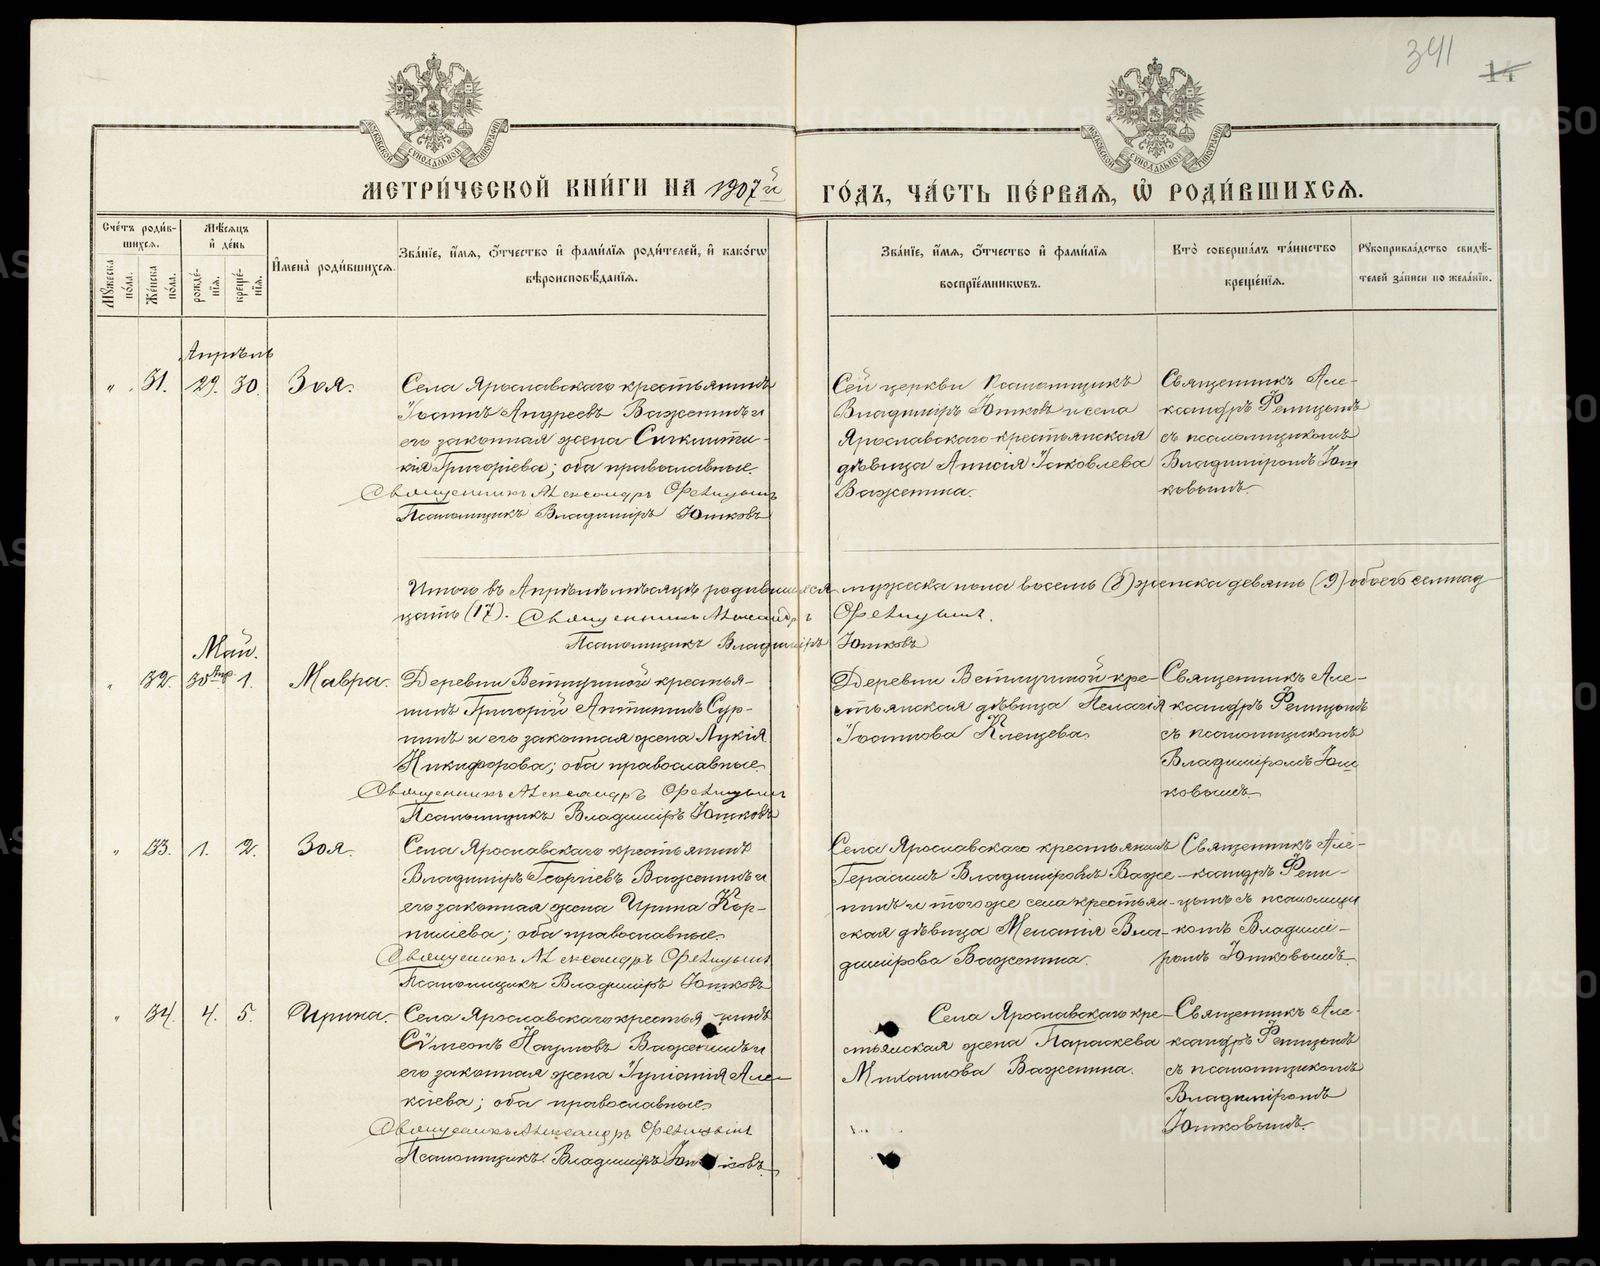 341
14
МОСКОВСКОЙ СѴНОДАЛЬНОЙ ТИПОГРАФІИ
МОСКОВСКОЙ СѴНОДАЛЬНОЙ ТИПОГРАФІИ
МЕТРИ́ЧЕСКОЙ КНИ́ГИ НА 1907й ГО́ДЪ, ЧА́СТЬ ПЕ́РВАЯ, Ѡ҆ РОДИ́ВШИХСЯ.
Сче́тъ роди́в-
шихся.
Мꙋ́жеска по́ла.
Же́нска по́ла.
Мѣ́сяцъ
и҆ де́нь
рожде́-
нія.
креще́-
нія.
И҆мена̀ роди́вшихся.
Зва́ніе, и҆́мя, ѻ҆́тчество и҆ фами́лія роди́телей, и҆ како́гѡ
вѣроисповѣ́данія.
Зва́ніе, и҆́мя, ѻ҆́тчество и҆ фами́лія
воспріе́мникѡвъ.
Кто̀ соверша́лъ та́инство
креще́нія.
Рꙋкоприкла́дство свидѣ́-
телей за́писи по жела́нію.
Апрѣль
" 31. 29. 30. Зоя.
Села Ярославскаго крестьянинъ
Іоаннъ Андреевъ Важенинъ и
его законная жена Сигклити-
кія Григоріева; оба православные.
Священникъ Александръ Феницынъ
Псаломщикъ Владиміръ Юшковъ
Сей церкви псаломщикъ
Владиміръ Юшковъ и села
Ярославскаго крестьянская
дѣвица Анисія Іаковлева
Важенина.
Священникъ Але-
ксандръ Феницынъ
съ псаломщикомъ
Владиміромъ Юш
ковымъ.
Итого въ Апрѣлѣ мѣсяцѣ родившихся мужеска пола восемь (8) женска девять (9) обоего семнад
цать (17). Священникъ Александръ Феницынъ.
Псаломщикъ Владиміръ Юшковъ
Май.
" 32. 30 Апр. 1. Мавра.
Деревни Ветлугиной крестья-
нинъ Григорій Антипинъ Сур-
нинъ и его законная жена Лукія
Никифорова; оба православные.
Священникъ Александръ Феницынъ
Псаломщикъ Владиміръ Юшковъ
Деревни Ветлугиной кре-
стьянская дѣвица Пелагія
Іоаннова Клещева.
Священникъ Але-
ксандръ Феницынъ
съ псаломщикомъ
Владиміромъ Юш
ковымъ.
" 33. 1. 2. Зоя.
Села Ярославскаго крестьянинъ
Владиміръ Георгіевъ Важенинъ и
его законная жена Ирина Кор-
ниліева; оба православные.
Священникъ Александръ Феницынъ
Псаломщикъ Владиміръ Юшковъ
Села Ярославскаго крестьянинъ
Герасимъ Владиміровъ Важе-
нинъ и того же села крестьян-
ская дѣвица Меланія Вла-
димірова Важенина.
Священникъ Але-
ксандръ Фени-
цынъ съ псаломщи
комъ Владимі-
ромъ Юшковымъ.
" 34. 4. 5. Ирина.
Села Ярославскаго крестьянинъ
Сѵмеонъ Наумовъ Важенинъ и
его законная жена Іуліанія Але-
ксіева; оба православные.
Священникъ Александръ Феницынъ
Псаломщикъ Владиміръ Юшковъ.
Села Ярославскаго кре-
стьянская жена Параскева
Михаилова Важенина.
Священникъ Але-
ксандръ Феницынъ
съ псаломщикомъ
Владиміромъ
Юшковымъ.
METRIKI.GASO-URAL.RU